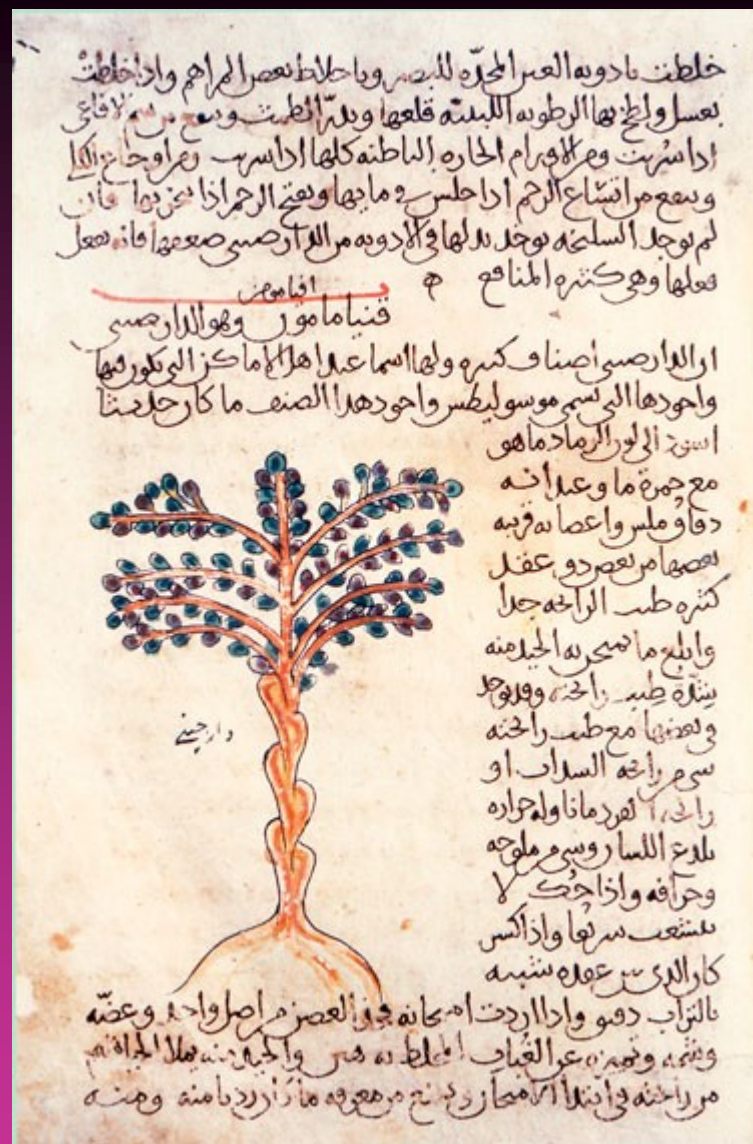 خلطت بادويه العين المحدّه للبصر وباخلاط بعض المراهم واذا خلطت
بعسل ولطخ بها الرطوبه اللبنيه قلعها ويدرّ الطمث وينفع من سم الافاعى
اذا شربت ومن الاورام الحاره الباطنه كلها اذا شربت ومن اوجاع الكلى
وينفع من اتساع الرحم اذا جلس فى مايها ويفتح الرحم اذا بخر بها فان
لم توجد السليخه يوجد بدلها فى الادويه من الدارصينى ضعفها فانه يفعل
فعلها وهى كثيره المنافع
قنيامامون وهو الدارصينى
ان الدارصينى اصناف كثيره ولها اسما عند اهل الاماكن التى يكون فيها
واجودها التى تسمى موسوليطس واجود هذا الصنف ما كان حديثا
اسود الى لون الرماد ما هو
مع حمرة ما وعيدانه
دقاق ملس واغصانه قريبه
بعضها من بعض ذو عقد
كثيره طيب الرائحه جدا
وابلغ ما يمتحن به الجيد منه
بشدّة طيب رائحته وقد يوجد
فى بعضها مع طيب رائحته
شى من رائحه السداب او
رائحه القردمانا وله حراره
يلدع اللسان وشى من ملوحه
وحرافه واذا حُكّ لا
يتشعب سريعا واذا كسر
كان الذى بين عقده شبيه
بالتراب دقيق واذا اردت امتحانه فخذ الغصن من اصل واحد وعضّه
من رائحته فى ابتدا الامتحان ويمنع من معرفه ما كان رديا منه ومنه
دارچينى